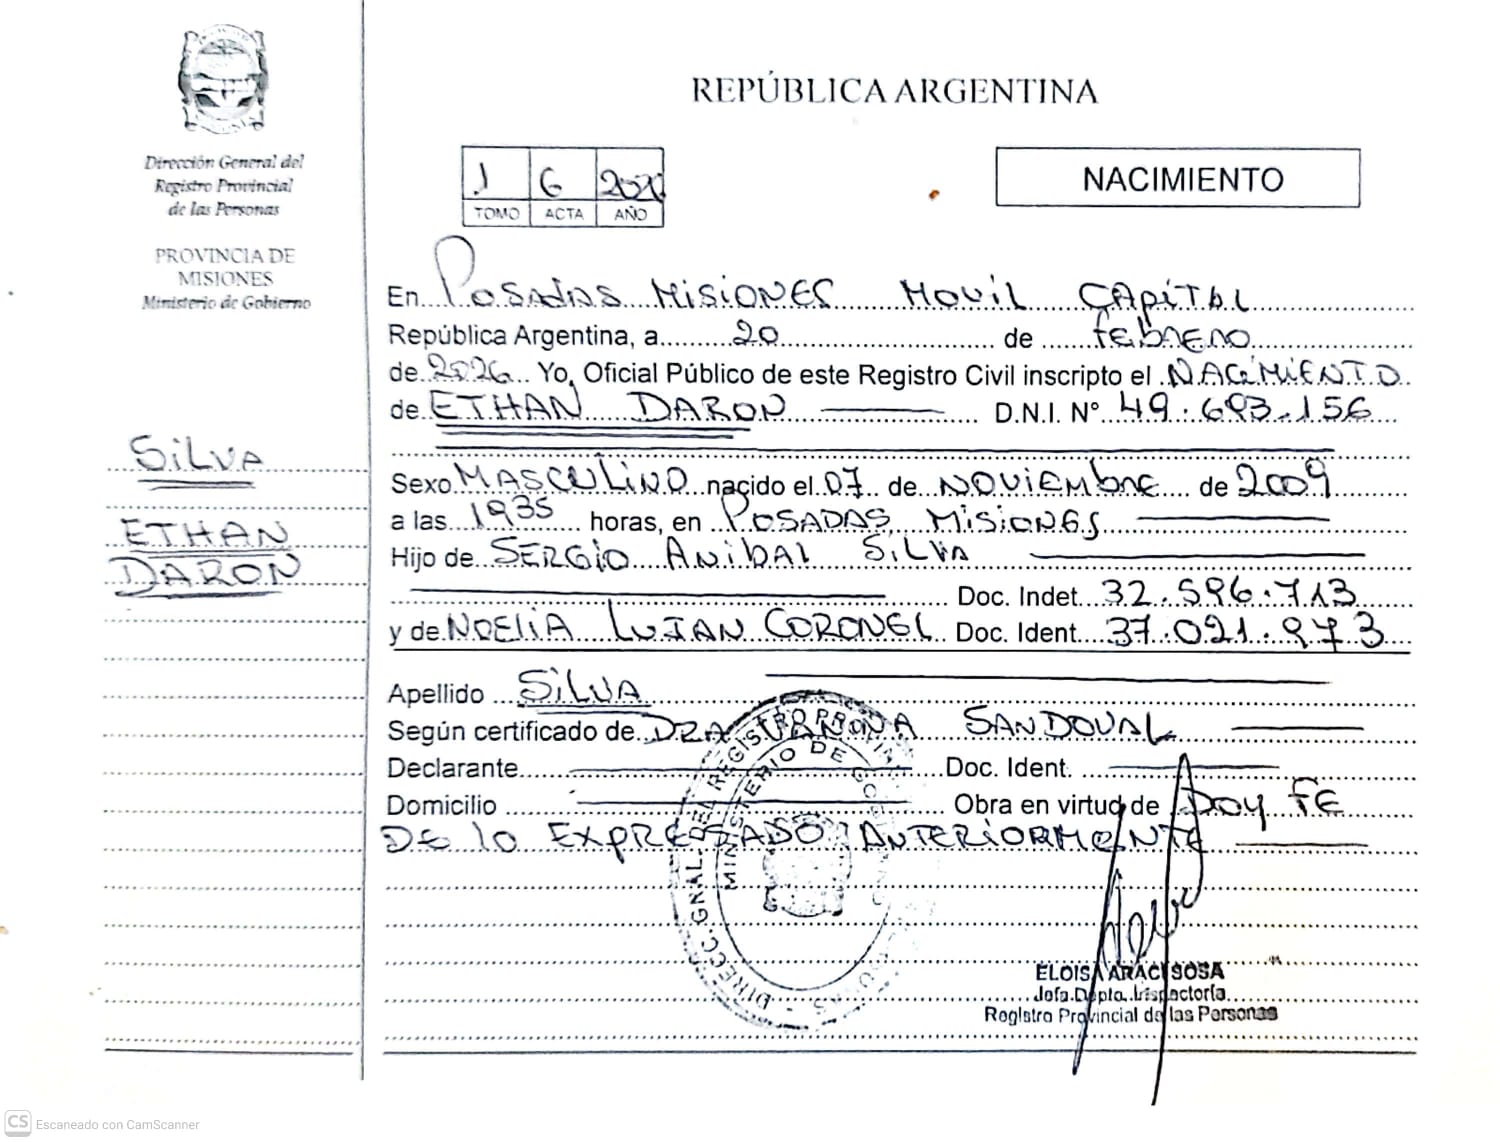 Dirección General del
Registro Provincial
de las Personas
PROVINCIA DE
MISIONES
Ministerio de Gobierno
SILVA
ETHAN
DARON
REPÚBLICA ARGENTINA
1 6
TOMO ACTA AÑO
NACIMIENTO
En POSADAS MISIONES MOVIL CAPITAL
República Argentina, a 20 de FEBRERO
de 2026 Yo, Oficial Público de este Registro Civil inscripto el NACIMIENTO
de ETHAN DARON D.N.I. N° 49.693.156
Sexo MASCULINO nacido el 07 de NOVIEMBRE de 2009
a las 1935 horas, en POSADAS, MISIONES
Hijo de SERGIO ANIBAL SILVA
Doc. Indet. 32.596.713
y de NOELIA LUJAN CORONEL Doc. Ident. 37.021.973
Apellido SILVA
Según certificado de DRA SANDOVAL
Declarante Doc. Ident.
Domicilio Obra en virtud de DOY FE
DE lo EXPRESADO ANTERIORMENTE
DIRECC. GRAL. DEL REGISTRO
MINISTERIO DE
ELOISA ARACI SOSA
Jefa Depto. Inspectoría
Registro Provincial de las Personas
CS Escaneado con CamScanner